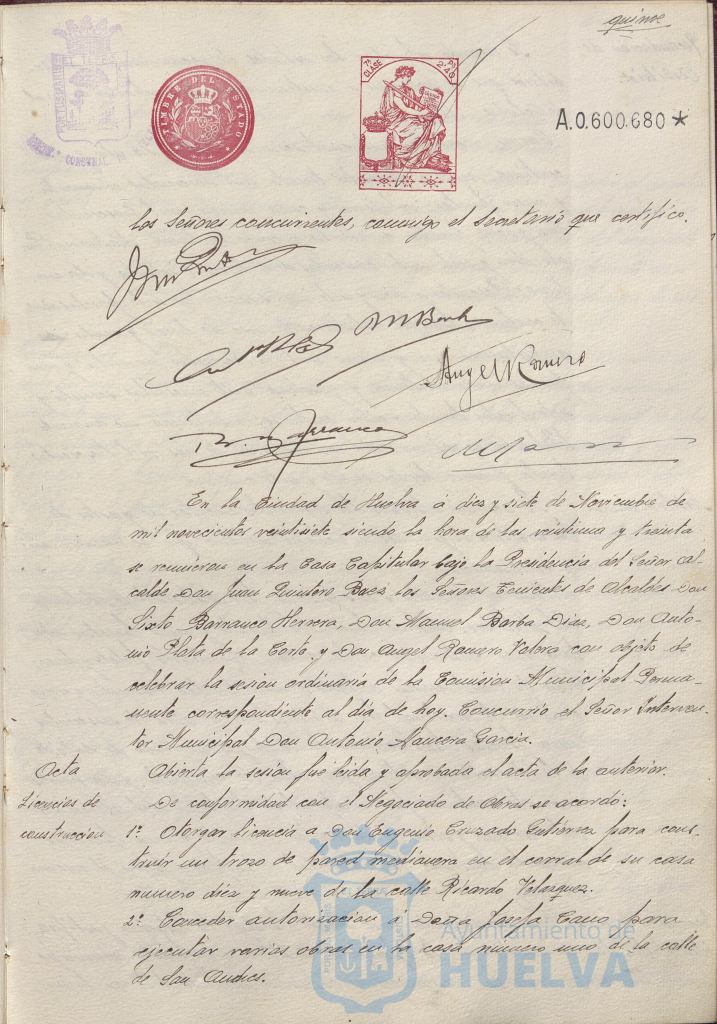 quince
TIMBRE DEL ESTADO
7ª CLASE
A.0.600.680 *
los Señores concurrentes, conmigo el Secretario que certifico.
M Barba
Angel Romero
En la Ciudad de Huelva á diez y siete de Noviembre de
mil novecientos veintisiete siendo la hora de las veintiuna y treinta
se reunieron en la Casa Capitular bajo la Presidencia del Señor Al-
calde Don Juan Quintero Baez los Señores Tenientes de Alcaldes Don
Sixto Barranco Herrera, Don Manuel Barba Diaz, Don Anto-
nio Plata de la Corte y Don Angel Romero Valera con objeto de
celebrar la sesion ordinaria de la Comision Municipal Perma-
nente correspondiente al dia de hoy. Concurrio el Señor Interven-
tor Municipal Don Antonio Mancera Garcia.
Acta
Abierta la sesion fué leida y aprobada el acta de la anterior.
Licencias de
construccion
De conformidad con el Negociado de Obras se acordó:
1º. Otorgar licencia a Don Eugenio Cruzado Gutiérrez para cons-
truir un trozo de pared medianera en el corral de su casa
numero diez y nueve de la calle Ricardo Velazquez.
2º. Conceder autorizacion á Doña Josefa Cano para
ejecutar varias obras en la casa numero uno de la calle
de San Andres.
Ayuntamiento de
HUELVA